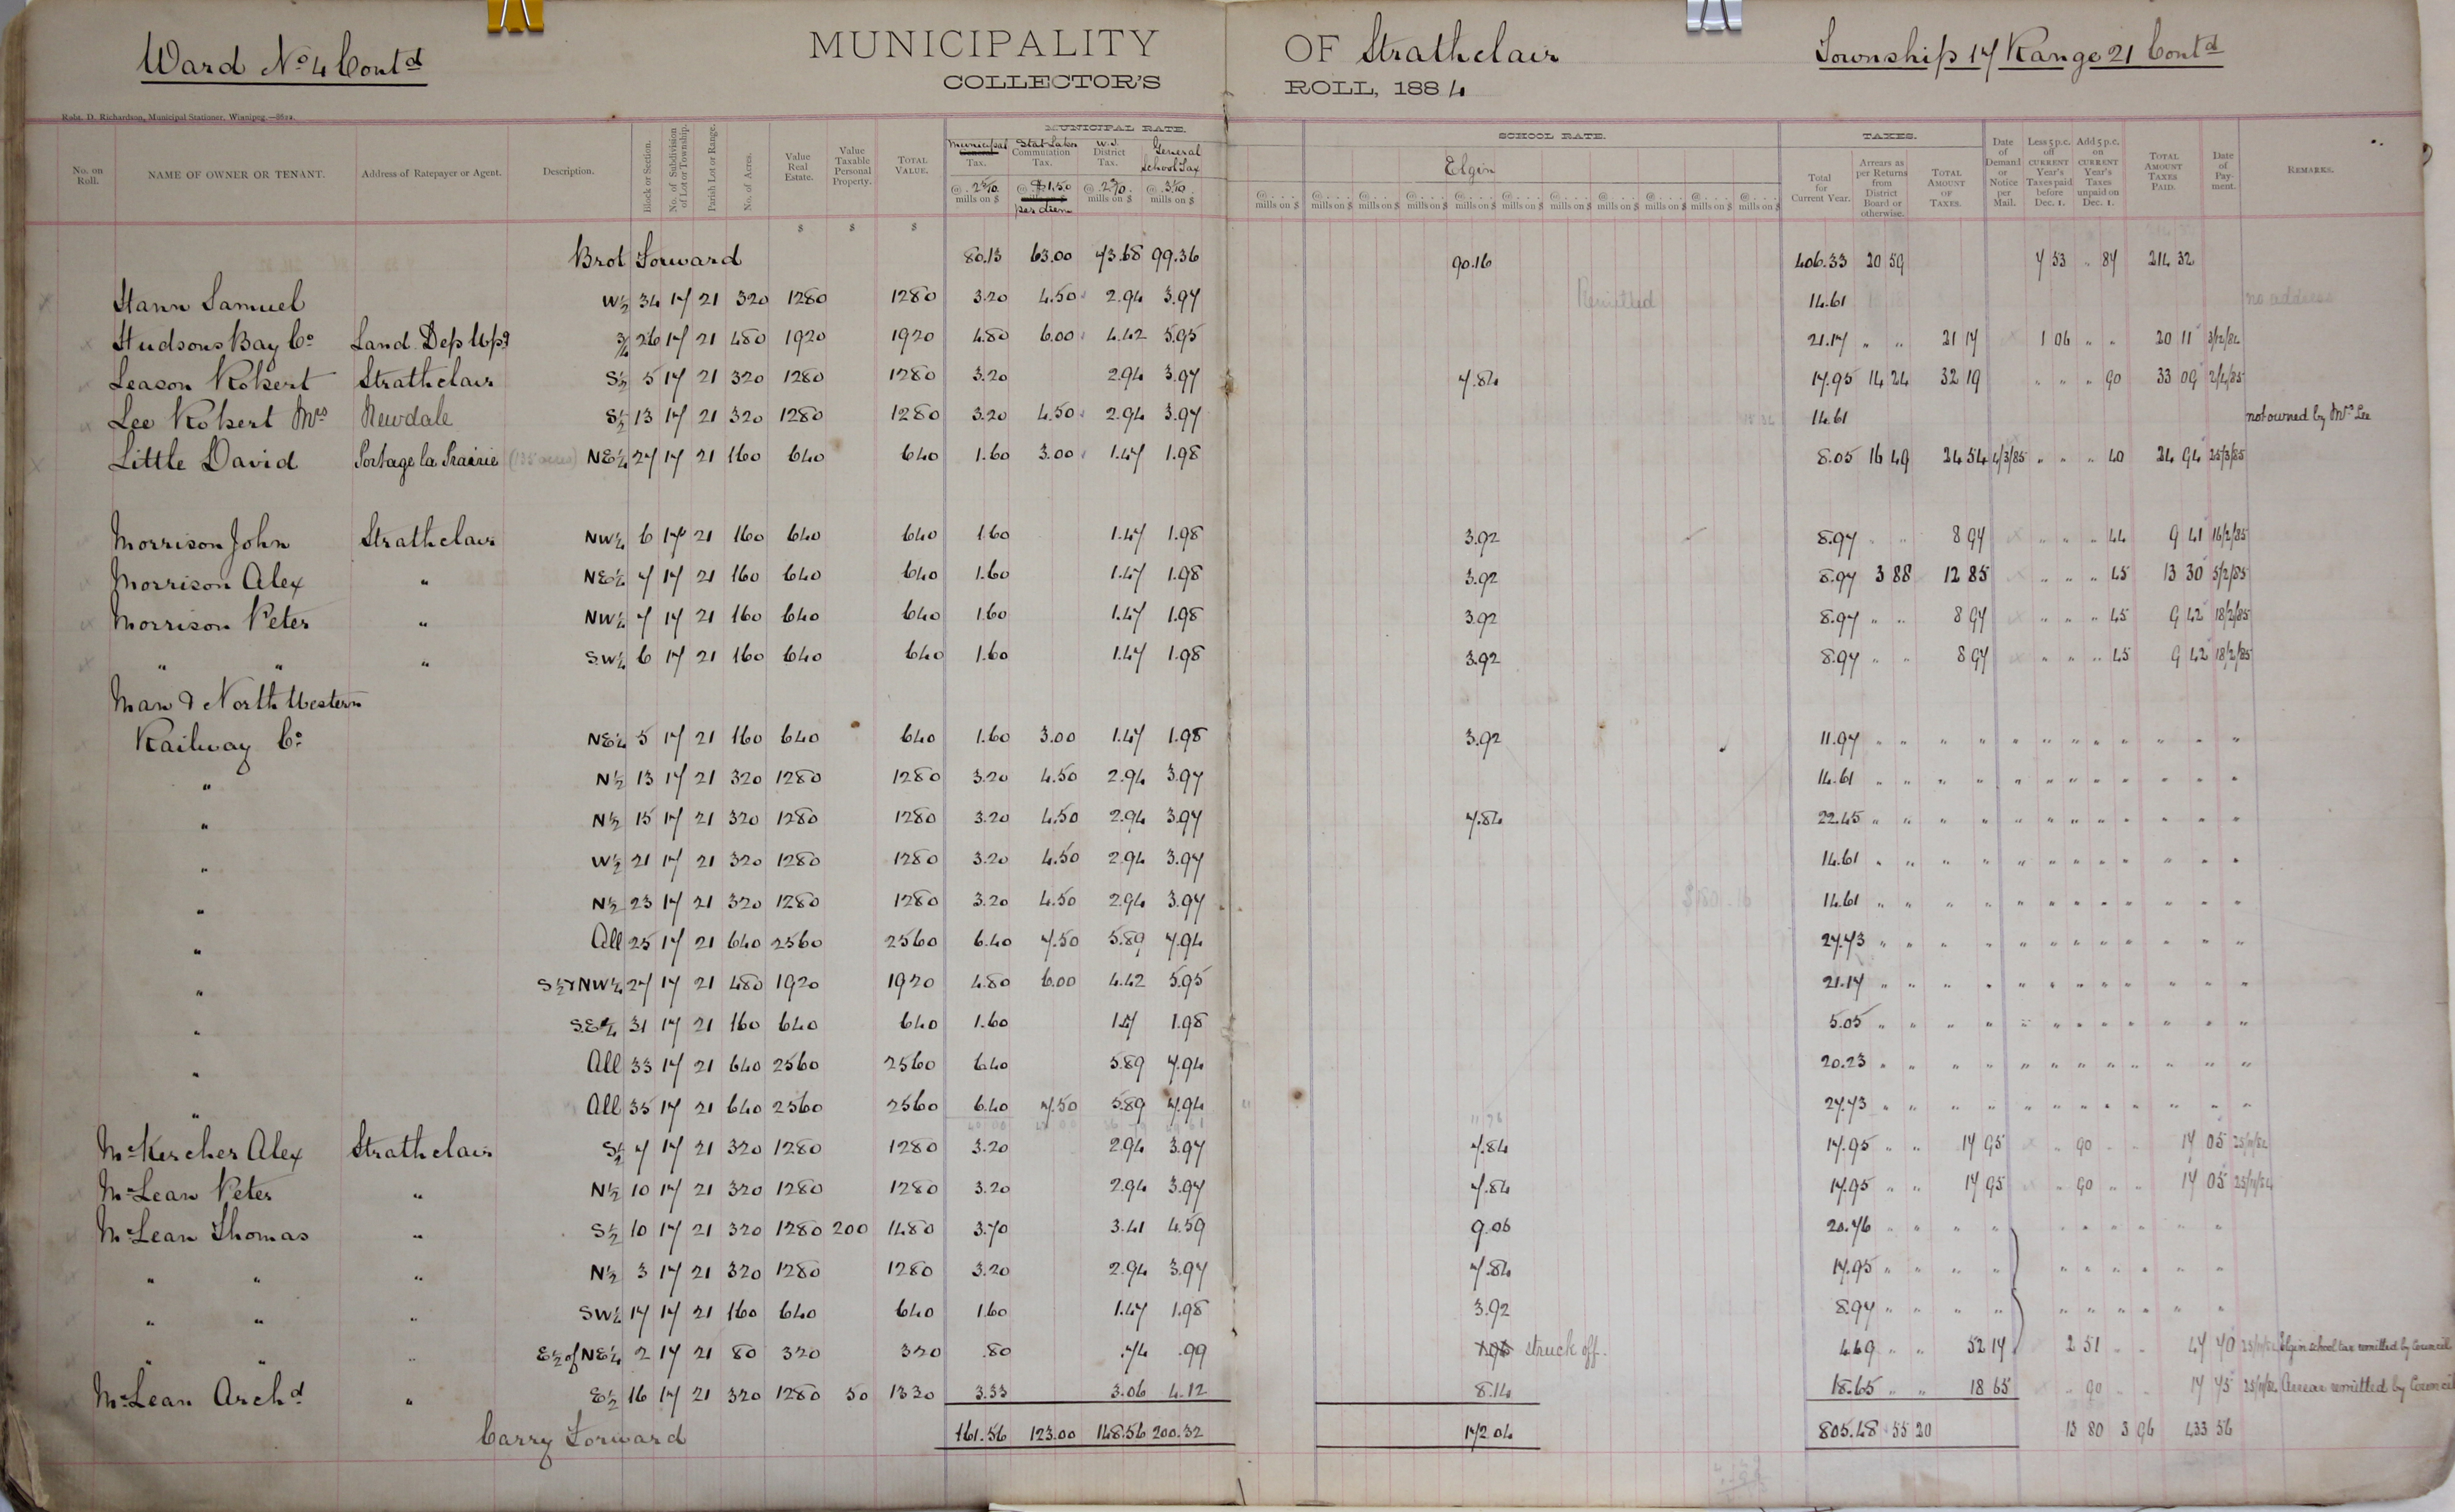 Ward No 4 Contd MUNICIPALITY OF Strathclair Township 17 Range 21 Contd
COLLECTOR'S ROLL, 1884
Robt. D. Richardson, Municipal Stationer, Winnipeg.
MUNICIPAL RATE. SCHOOL RATE. TAXES.
No. on Roll. NAME OF OWNER OR TENANT. Address of Ratepayer or Agent. Description. Block or Section. No. of Subdivision of Lot or Township. Parish Lot or Range. No. of Acres. Value Real Estate. Value Taxable Personal Property. TOTAL VALUE. Municipal General Tax. Stat Labor Commutation Tax. District Tax. General School Tax Elgin Total for Current Year. Arrears as per Returns from District Board or otherwise. TOTAL AMOUNT OF TAXES. Date of Demand or Notice per Mail. Less 5 p.c. off CURRENT Year's Taxes paid before Dec. 1. Add 5 p.c. on CURRENT Year's Taxes unpaid on Dec. 1. TOTAL AMOUNT TAXES PAID. Date of Payment. REMARKS.
@ 2 5/10 mills on $ @ $1.50 per diem @ 2 3/10 mills on $ @ 3 1/10 mills on $ @ . . . mills on $ @ . . . mills on $ @ . . . mills on $ @ . . . mills on $ @ . . . mills on $ @ . . . mills on $ @ . . . mills on $ @ . . . mills on $ @ . . . mills on $ @ . . . mills on $ @ . . . mills on $
$ $ $
Brot Forward 80.13 63.00 73.68 99.36 90.16 406.33 20 59 7 53 " 87 214 32
Hann Samuel W½ 34 17 21 320 1280 1280 3.20 4.50 2.94 3.97 Remitted 14.61 no address
Hudsons Bay Co Land Dep Wpg ¾ 26 17 21 480 1920 1920 4.80 6.00 4.42 5.95 21.17 " " 21 17 1 06 " " 20 11 3/12/84
Leason Robert Strathclair S½ 5 17 21 320 1280 1280 3.20 2.94 3.97 7.84 17.95 14 24 32 19 " " " 90 33 09 2/4/85
Lee Robert Mrs Newdale S½ 13 17 21 320 1280 1280 3.20 4.50 2.94 3.97 14.61 not owned by Mrs Lee
Little David Portage la Prairie NE¼ 27 17 21 160 640 640 1.60 3.00 1.47 1.98 8.05 16 49 24 54 4/3/85 " " " 40 24 94 25/3/85
Morrison John Strathclair NW¼ 6 17 21 160 640 640 1.60 1.47 1.98 3.92 8.97 " " 8 97 " " " 44 9 41 16/2/85
Morrison Alex " NE¼ 7 17 21 160 640 640 1.60 1.47 1.98 3.92 8.97 3 88 12 85 " " " 45 13 30 5/2/85
Morrison Peter " NW¼ 7 17 21 160 640 640 1.60 1.47 1.98 3.92 8.97 " " 8 97 " " " 45 9 42 18/2/85
" " " SW¼ 6 17 21 160 640 640 1.60 1.47 1.98 3.92 8.97 " " 8 97 " " " 45 9 42 18/2/85
Man & North Western
Railway Co NE¼ 5 17 21 160 640 640 1.60 3.00 1.47 1.98 3.92 11.97 " " " " " " " " " " " "
" N½ 13 17 21 320 1280 1280 3.20 4.50 2.94 3.97 14.61 " " " " " " " " " " " "
" N½ 15 17 21 320 1280 1280 3.20 4.50 2.94 3.97 7.84 22.45 " " " " " " " " " " " "
" W½ 21 17 21 320 1280 1280 3.20 4.50 2.94 3.97 14.61 " " " " " " " " " " " "
" N½ 23 17 21 320 1280 1280 3.20 4.50 2.94 3.97 14.61 " " " " " " " " " " " "
" All 25 17 21 640 2560 2560 6.40 7.50 5.89 7.94 27.73 " " " " " " " " " " " "
" S½ & NW¼ 27 17 21 480 1920 1920 4.80 6.00 4.42 5.95 21.17 " " " " " " " " " " " "
" S.E¼ 31 17 21 160 640 640 1.60 1.47 1.98 5.05 " " " " " " " " " " " "
" All 33 17 21 640 2560 2560 6.40 5.89 7.94 20.23 " " " " " " " " " " " "
" All 35 17 21 640 2560 2560 6.40 7.50 5.89 7.94 27.73 " " " " " " " " " " " "
McKercher Alex Strathclair S½ 7 17 21 320 1280 1280 3.20 2.94 3.97 7.84 17.95 " " 17 95 " 90 " " 17 05 25/11/84
McLean Peter " N½ 10 17 21 320 1280 1280 3.20 2.94 3.97 7.84 17.95 " " 17 95 " 90 " " 17 05 25/11/84
McLean Thomas " S½ 10 17 21 320 1280 200 1480 3.70 3.41 4.59 9.06 20.76 " " " " " " " " " " "
" " " N½ 3 17 21 320 1280 1280 3.20 2.94 3.97 7.84 17.95 " " " " " " " " " " "
" " " SW¼ 17 17 21 160 640 640 1.60 1.47 1.98 3.92 8.97 " " " " " " " " " " "
" " " E½ of NE¼ 2 17 21 80 320 320 .80 .74 .99 1.96 struck off. 4.49 " " 52 17 2 51 " " 47 70 25/11/84 Elgin school tax remitted by Council
McLean Archd " E½ 16 17 21 320 1280 50 1330 3.33 3.06 4.12 8.14 18.65 " " 18 65 " 90 " " 17 75 25/11/84 Arrear remitted by Council
Carry Forward 161.56 123.00 148.56 200.32 172.04 805.48 55 20 13 80 3 96 433 56